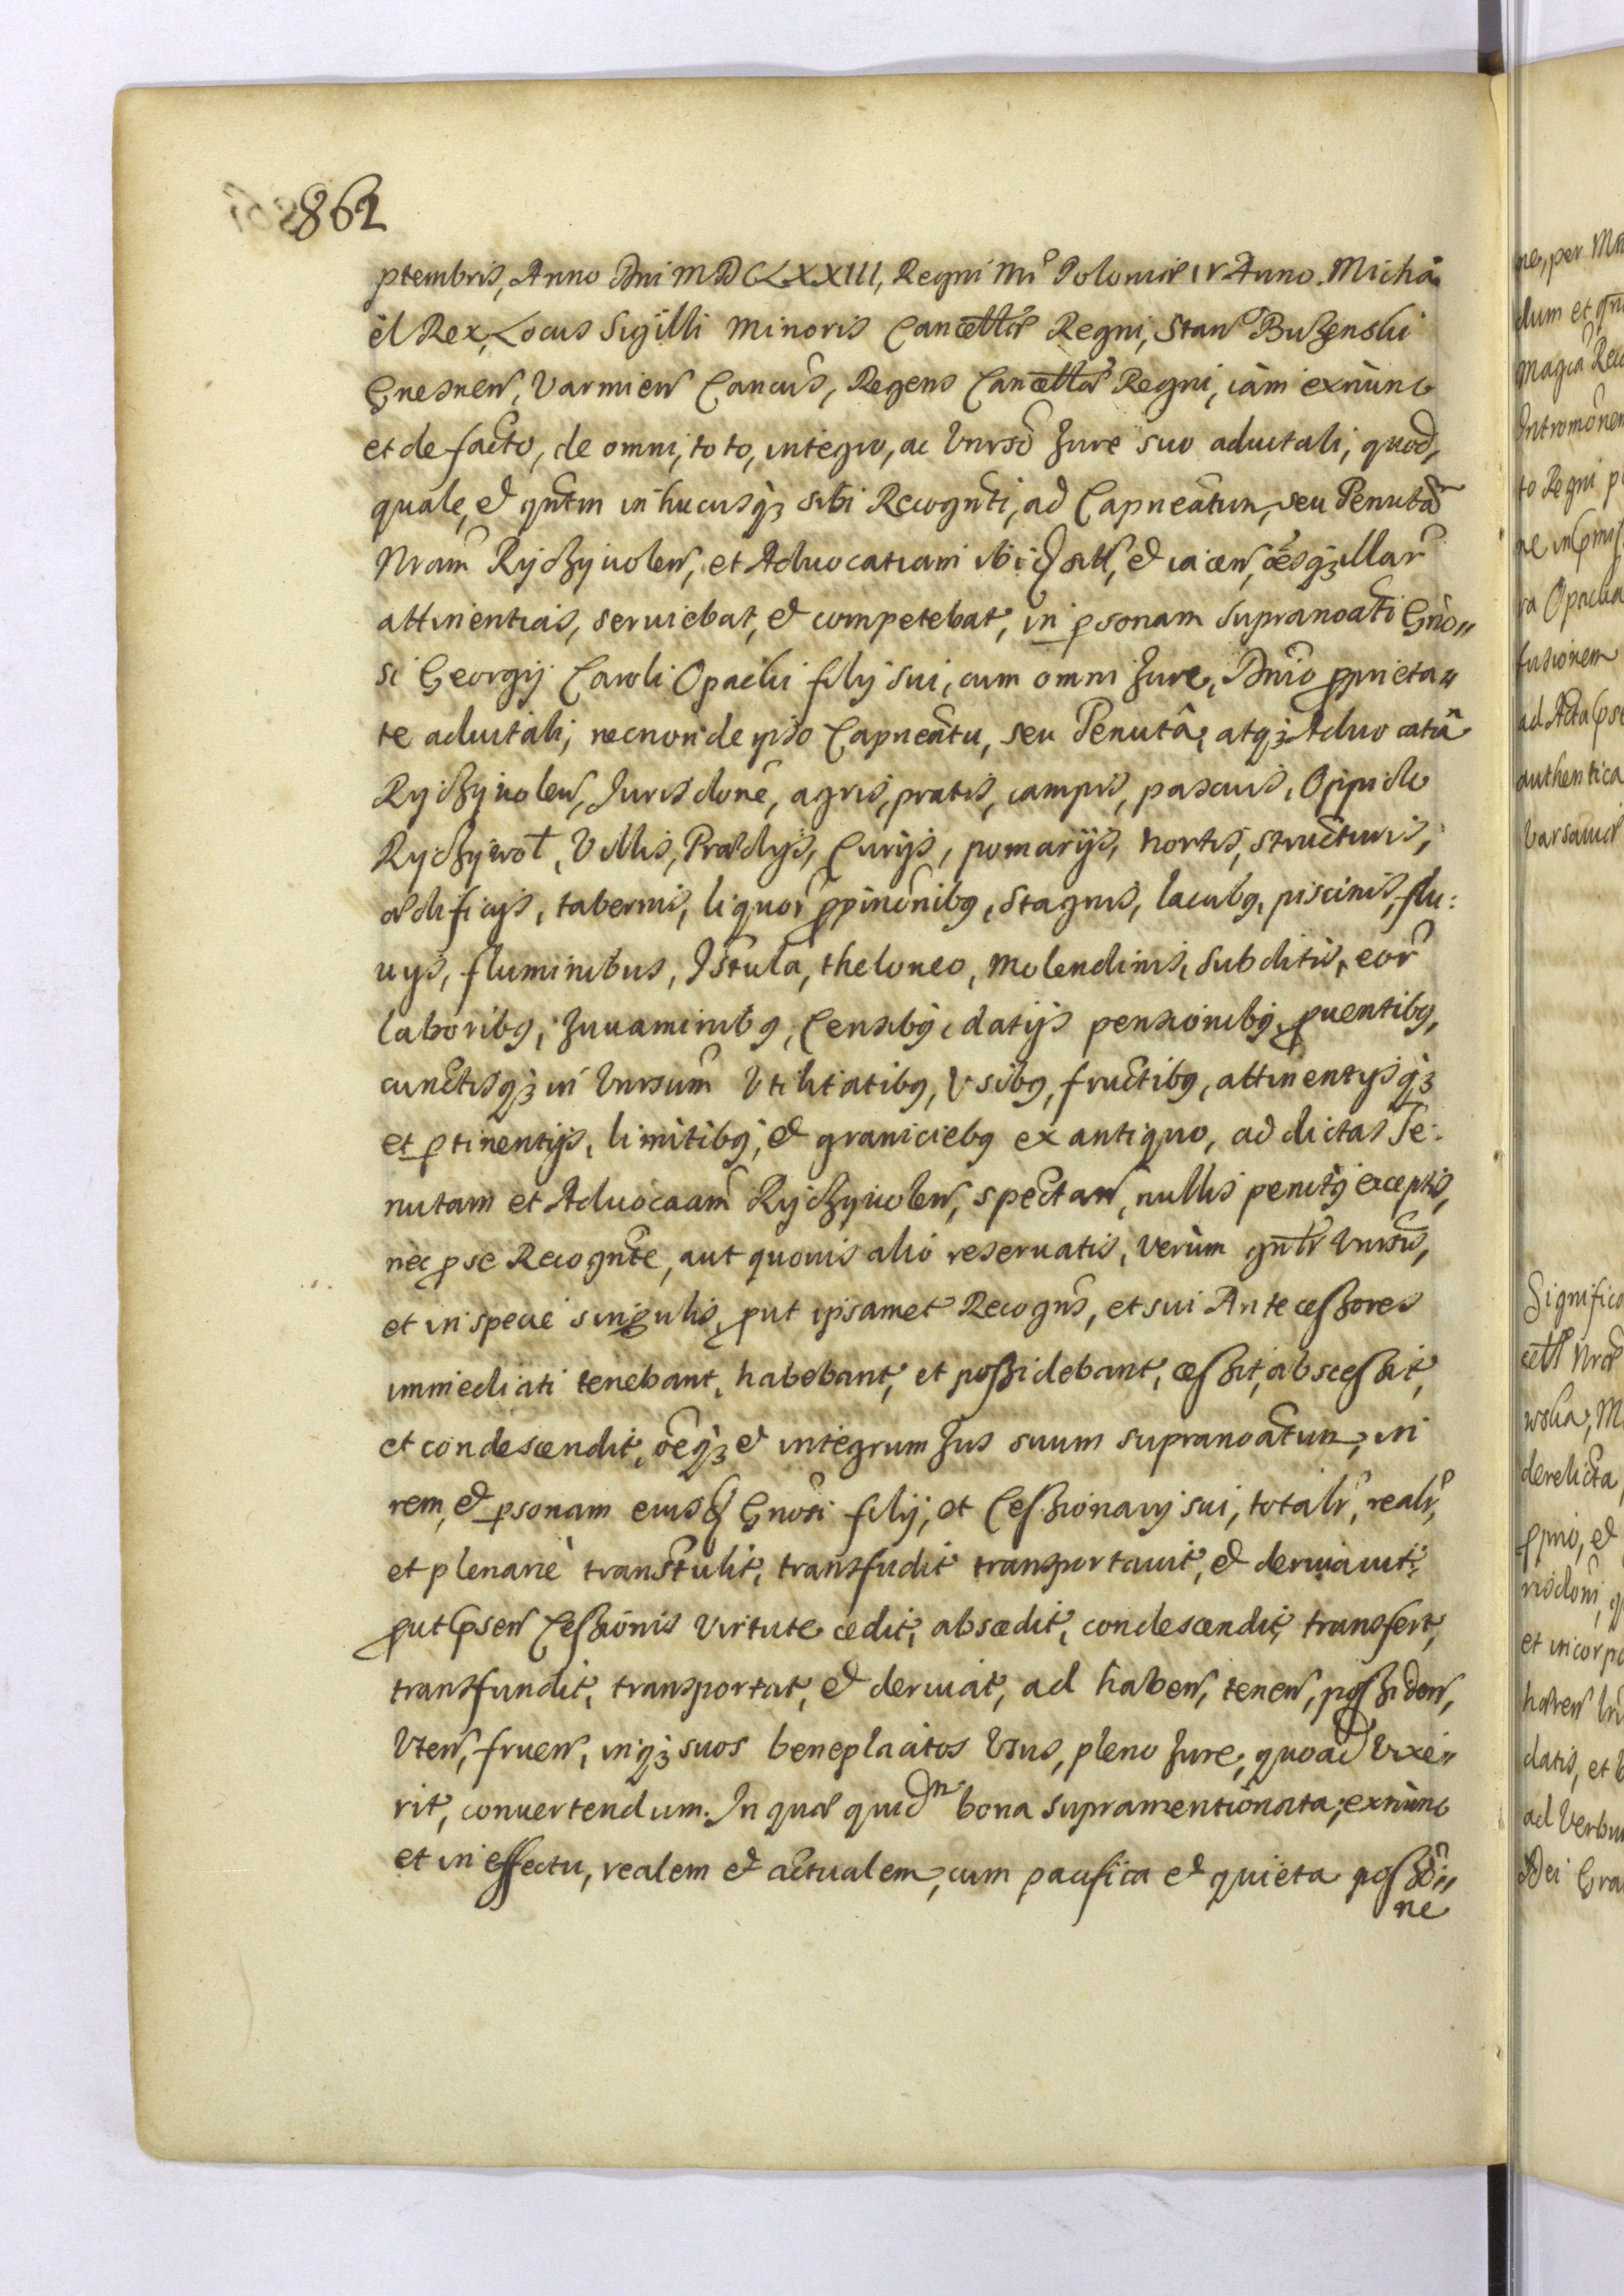 862
ptembris, Anno Dni MDCLXXIII, Regni Nri Poloniæ IV Anno. Micha
el Rex, Locus Sigilli Minoris Cancellæ Regni, Stan Buzenski
Gnesnen, Varmien Cancus, Regens Cancellæ Regni, iàm exnùnc
et de facto, de omni, toto, integro, ac Vnrso Jure suo aduitali, quod,
quale, et qntm in hucusq3 sibi Recognti, ad Capneatum, seu Tenuta
Nram Ryczywolen, et Aduocatiam ibid sit, et iacen, oesq3 illar
attinentias, seruiebat, et competebat, in psonam Supranoati Gno„
si Georgij Caroli Opacki filij sui, cum omni Jure, Dnio pprieta„
te aduitali, necnon de ipso Capneatu, seu Tenutâ, atq3 Aduocatiâ
Ryczywolen, Jurisdone, agris, pratis, campis, pascuis, Oppido
Ryczywoł, Villis, Prædijs, Curijs, pomarijs, hortis, structuris,
ædificijs, tabernis, liquor ppinonibq, Stagnis, lacubq, piscinis, flu:
uijs, fluminibus, Istula, theloneo, Molendinis, Subditis, eor
laboribq, Juuaminibq, Censibq, datijs pensionibq, puentibq,
cunctisq3 in Vnrsum Vtilitatibq, Vsibq, fructibq, attinentijsq3
et ptinentijs, limitibq, et graniciebq ex antiquo, ad dictas Te:
nutam et Aduocaam Ryczywolen, spectan, nullis penitq exceptis,
nec p se Recognte, aut quouis alio reseruatis, Verùm gnlr Vnrsis,
et in specie singulis, put ipsamet Recogns, et sui Antecessores
immediati tenebant, habebant, et possidebant, cessit, abscessit,
et condescendit, oeq3 et integrum Jus suum supranoatum, in
rem, et psonam eiusd Gnosi filij, et Cessionarij sui, totalr, realr,
et plenariè transtulit, transfudit transportauit, et deriuauit,
put psen Cessionis Virtute cedit, abscedit, condescendit, transfert,
transfundit, transportat, et deriuat, ad haben, tenen, possiden,
Vten, fruen, inq3 suos beneplacitos Vsus, pleno Jure, quoad Vixe„
rit, conuertendum. In quæ quidm bona supramentionata, exnùnc
et in effectu, realem et actualem, cum pacifica et quieta possio„
ne